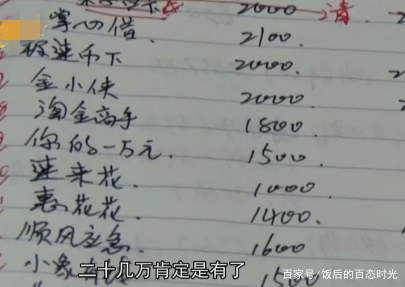 2000 清
掌心借 2100.
极速币下 2000.
金小侠 2000.
淘金高手 1800.
你的一万元. 1500.
速来花. 1000.
惠花花. 1400.
顺风应急. 1600
小象 1500
二十几万肯定是有了
百家号/饭后的百态时光